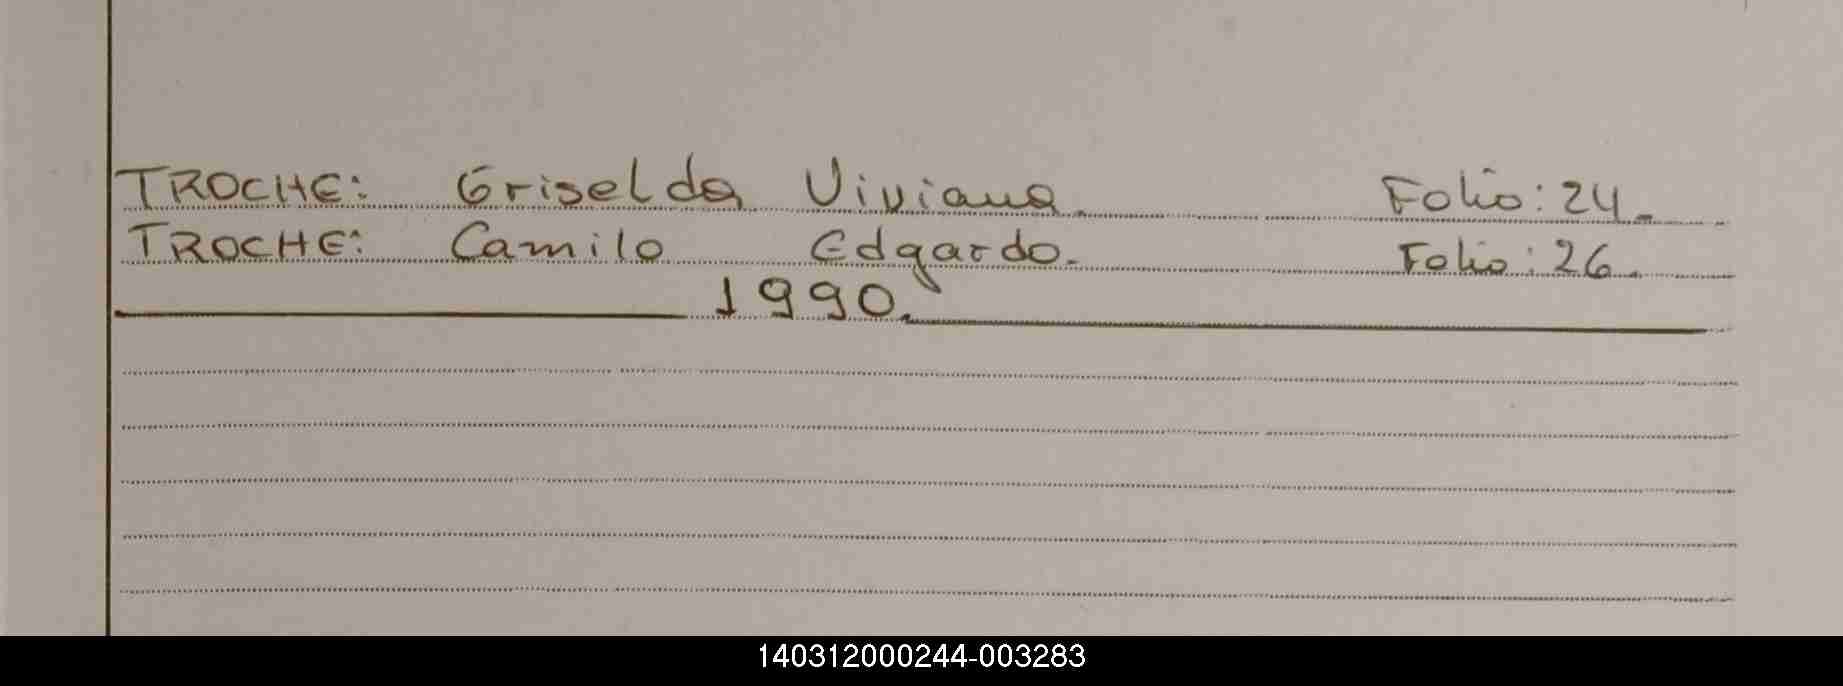 TROCHE: Griselda Viviana. Folio: 24.
TROCHE: Camilo Edgardo. Folio: 26.
1990.
140312000244-003283